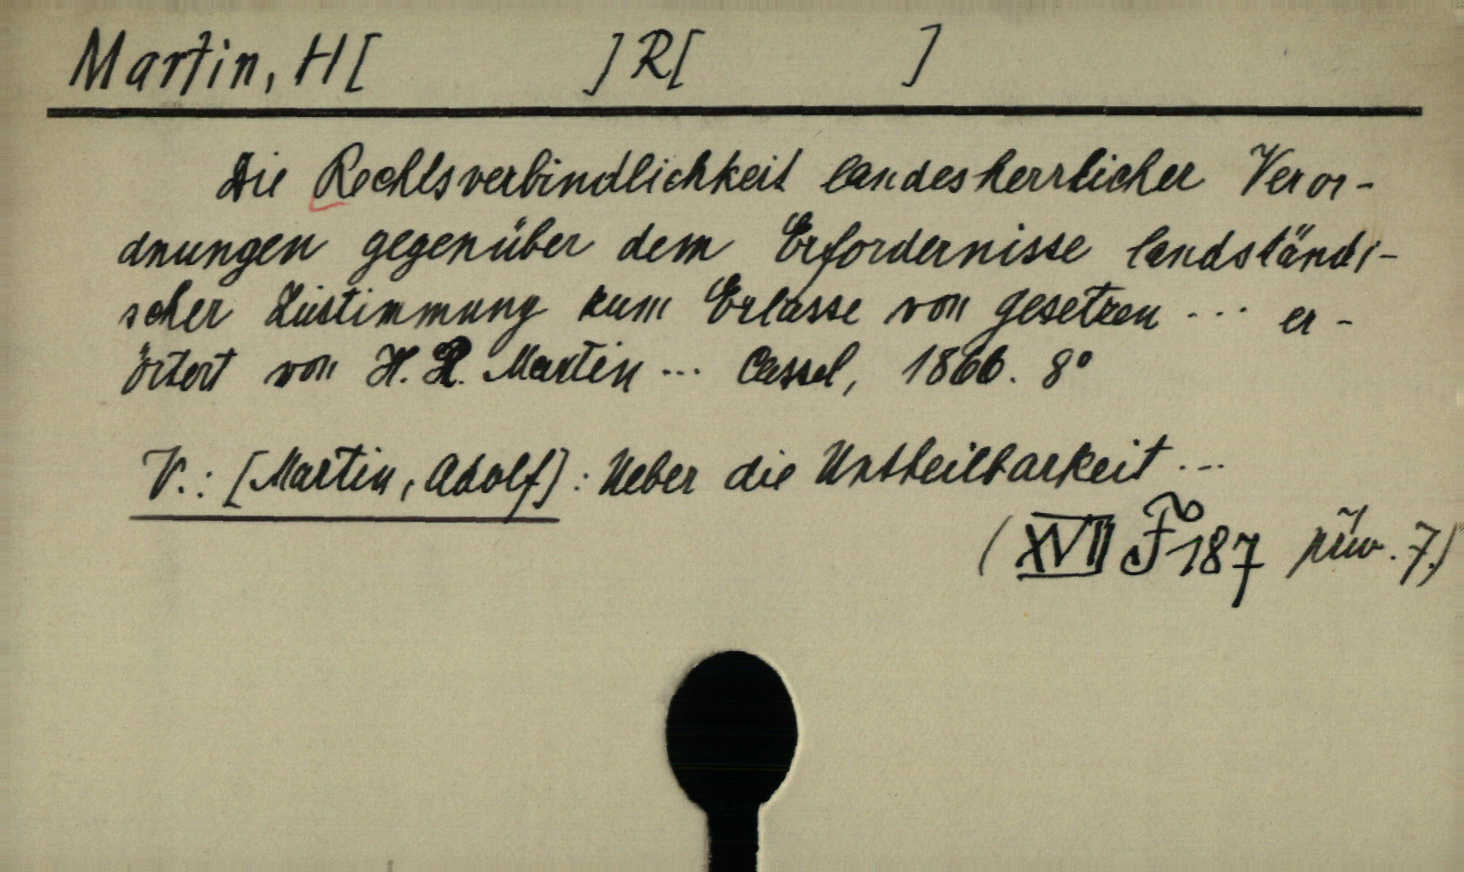 Martin, H[ ] R[ ]
Die Rechtsverbindlichkeit landesherrlicher Veror-
dnungen gegenüber dem Erfordernisse landständi-
scher Zustimmung zum Erlasse von Gesetzen ... er-
örtert von H. R. Martin ... Cassel, 1866. 8°
V.: [Martin, Adolf]: Ueber die Untheilbarkeit ...
(XVII F 187 přív. 7.)